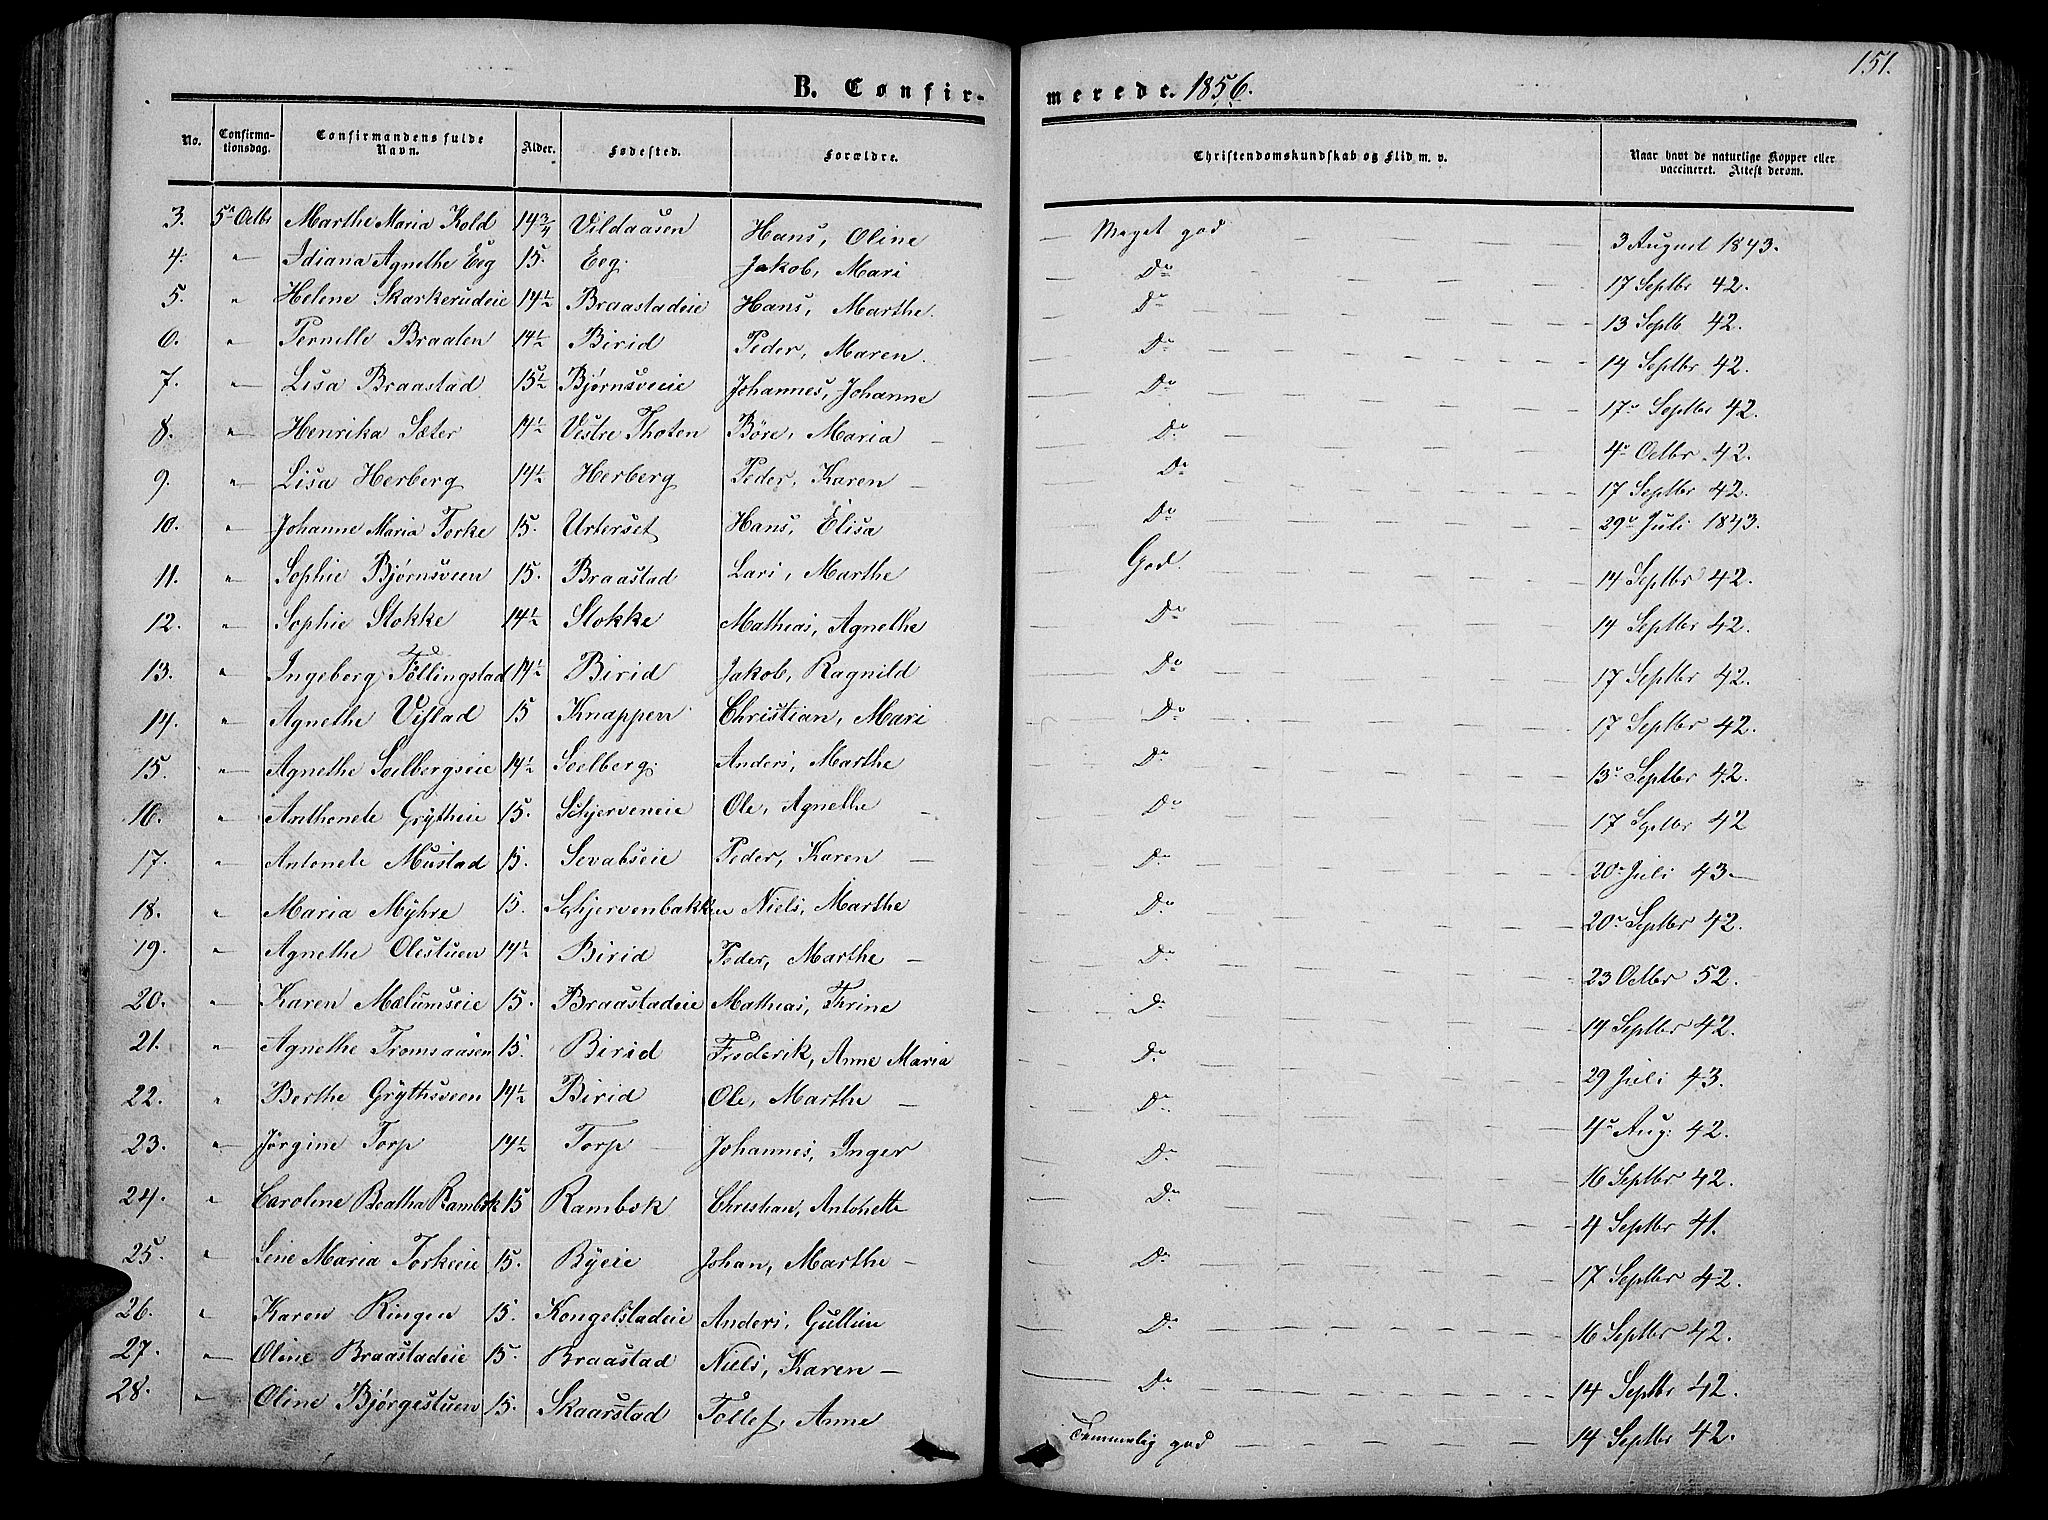 151.
B. Confir- merede. 1856.
No. Confirma-tionsdag. Confirmandens fulde Navn. Alder. Fødested. Forældre. Christendomskundskab og Flid m. v. Naar havt de naturlige Kopper eller vaccineret. Attest derom.
3. 5n Octbr Marthe Maria Kold 14 3/4 Vildaasen Hans, Oline — Meget god 3 August 1843.
4. " Idiana Agnethe Eeg 15. Eeg. Jakob, Mari — Do — 17 Septbr 42.
5. " Helene Skarkerudeie 14½ Braastadeie Hans, Marthe. — Do — 13 Septb 42.
6. " Pernille Braaten 14½ Birid Peder, Maren. — Do — 14 Septbr 42.
7. " Lisa Braastad 15½ Bjørnsveeie Johannes, Johanne — Do — 17n Septbr 42.
8. " Henrika Sæter 14½ Vestre Thoten Böre, Maria — Do — 4n Octbr 42.
9. " Lisa Herberg 14½ Herberg Peder, Karen — Do — 17 Septbr 42.
10. " Johanne Maria Torke 15. Urterset Hans, Elisa — Do — 29n Juli 1843.
11. " Sophie Bjørnsveen 15. Braastad Lars, Marthe — God. — 14 Septbr 42.
12. " Sophie Stokke 14½ Stokke Mathias, Agnethe — Do — 14 Septbr 42.
13. " Ingeborg Töllingstad 14½ Birid Jakob, Ragnild — Do — 17 Septbr 42.
14. " Agnethe Vistad 15 Knappen Christian, Mari — Do — 17 Septbr 42.
15. " Agnethe Soelbergseie 14½ Soelberg. Anders, Marthe — Do — 13n Septbr 42.
16. " Anthonete Grÿtheie 15. Schjerveneie Ole, Agnethe — Do — 17 Septbr 42
17. " Antonete Mustad 15. Sevalseie Peder, Karen — Do — 20n Juli 43 —
18. " Maria Mÿhre 15. Schjervenbakken Niels, Marthe — Do — 20n Septbr 42.
19. " Agnethe Olestuen 14½ Birid Peder, Marthe — Do — 23 Octbr 52.
20. " Karen Mælumseie 15. Braastadeie Mathias, Thrine — Do — 14 Septbr 42.
21. " Agnethe Tromsaasen 15. Birid Frederik, Anne Maria — Do — 29 Juli 43.
22. " Berthe Grÿthsveen 14½ Birid Ole, Marthe — Do — 4n Aug: 42.
23. " Jørgine Torp 14½ Torp — Johannes, Inger — Do — 16 Septbr 42.
24. " Caroline Beatha Rambek 15 Rambek Christian, Antonette — Do — 4 Septbr 41.
25. " Line Maria Torkeeie 15. Bÿeie Johan, Marthe — Do — 17 Septbr 42.
26. " Karen Ringen 15. Kongelstadeie Anders, Gullim — Do — 16 Septbr 42.
27. " Oline Braastadeie 15. Braastad Niels, Karen — Do — 14 Septbr 42.
28. " Oline Bjørgestuen 15. Skaarstad Tollef, Anne Temmelig god — 14 Septbr 42.